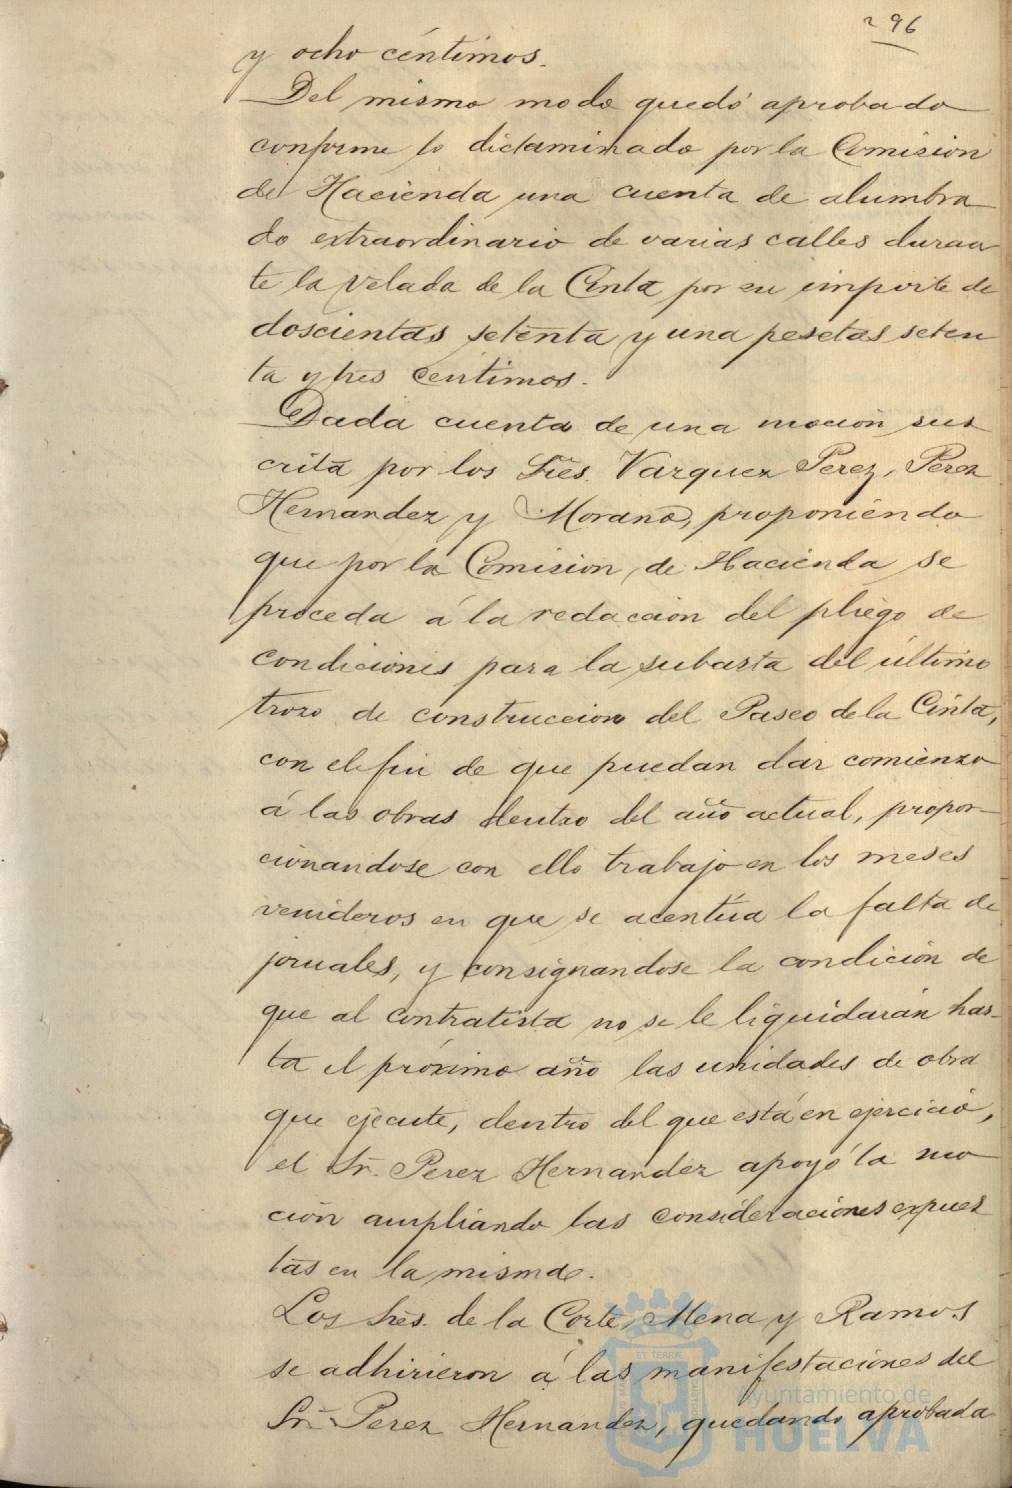 296
y ocho céntimos.
Del mismo modo quedó aprobado
conforme lo dictaminado por la Comisión
de Hacienda una cuenta de alumbra
do extraordinario de varias calles duran
te la Velada de la Cinta por su importe de
doscientas setenta y una pesetas seten
ta y tres centimos.
Dada cuenta de una moción sus
crita por los Sres. Vazquez Perez, Perez
Hernandez y Morano, proponiendo
que por la Comision de Hacienda se
proceda á la redaccion del pliego de
condiciones para la subasta del último
trozo de construccion del Paseo de la Cinta,
con el fin de que puedan dar comienzo
á las obras dentro del año actual, propor-
cionandose con ello trabajo en los meses
venideros en que se acentúa la falta de
jornales, y consignandose la condición de
que al contratista no se le liquidarán has-
ta el próximo año las unidades de obra
que ejecute, dentro del que está en ejercicio,
el Sr. Perez Hernandez apoyó la mo
ción ampliando las consideraciones expues
tas en la misma.
Los Sres. de la Corte, Mena y Ramos
se adhirieron á las manifestaciones del
Sr. Perez Hernandez, quedando aprobada
Ayuntamiento de
HUELVA